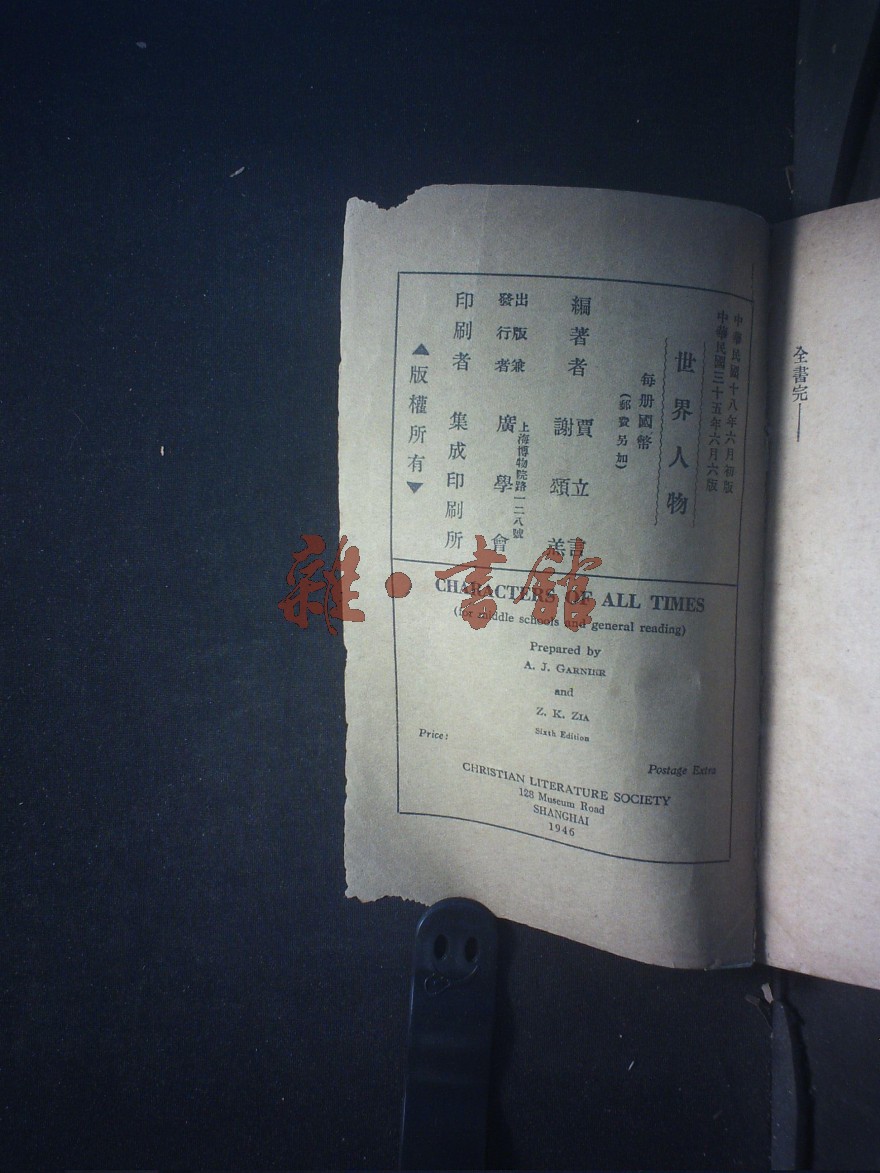 全書完——
中華民國十八年六月初版
中華民國三十五年六月六版
世界人物
每册國幣
(郵費另加)
編著者 賈立言
謝頌羔
出版兼
發行者 廣學會
上海博物院路一二八號
印刷者 集成印刷所
▲版權所有▼
CHARACTERS OF ALL TIMES
(for middle schools and general reading)
Prepared by
A. J. GARNIER
and
Z. K. ZIA
Sixth Edition
Price:
Postage Extra
CHRISTIAN LITERATURE SOCIETY
128 Museum Road
SHANGHAI
1946
雜·書館